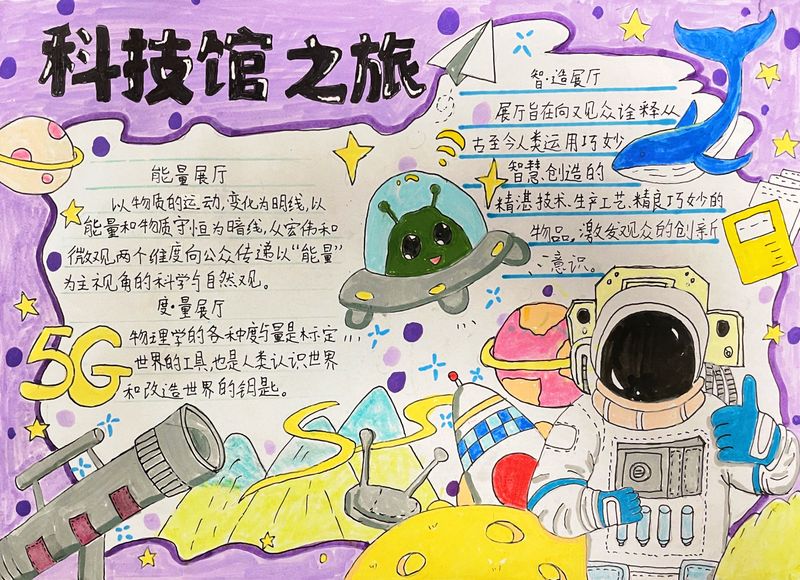 科技馆之旅
能量展厅
以物质的运动,变化为明线,以
能量和物质守恒为暗线,从宏伟和
微观两个维度向公众传递以“能量”
为主视角的科学与自然观。
度·量展厅
物理学的各种度与量是标定
世界的工具,也是人类认识世界
和改造世界的钥匙。
5G
智·造展厅
展厅旨在向观众诠释从
古至今人类运用巧妙
智慧创造的
精湛技术、生产工艺、精良巧妙的
物品,激发观众的创新
意识。